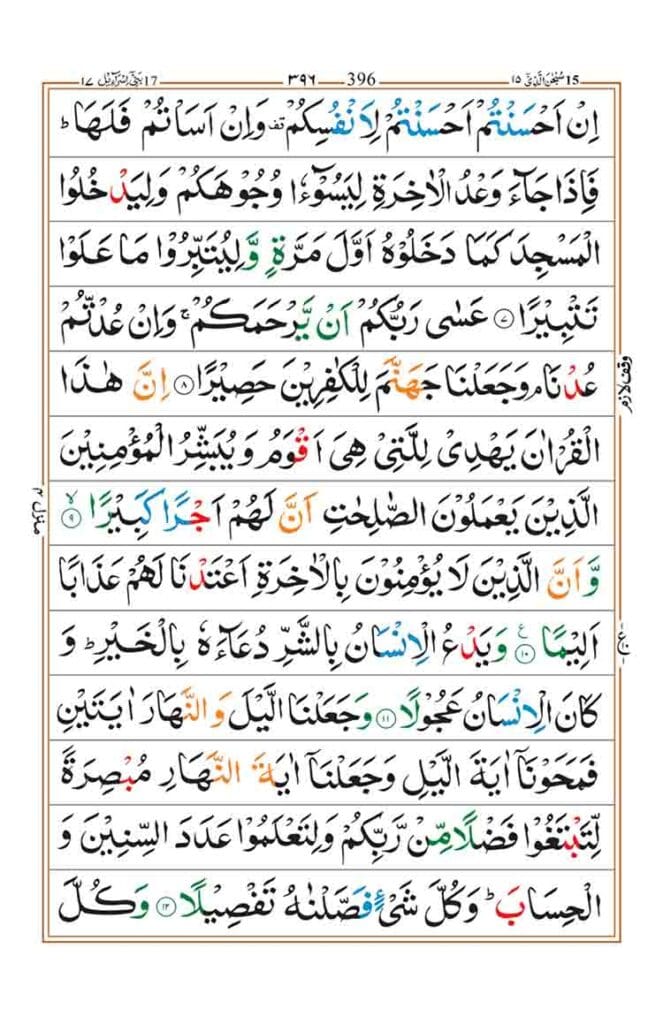 ١٧ بنی اسرآءیل 17 ٣٩٦ 396 سبحٰن الذی ١٥ 15
اِنْ اَحْسَنْتُمْ اَحْسَنْتُمْ لِاَنْفُسِكُمْ قف وَاِنْ اَسَاْتُمْ فَلَهَا ؕ
فَاِذَا جَآءَ وَعْدُ الْاٰخِرَةِ لِيَسُوْٓءٗا وُجُوْهَكُمْ وَلِيَدْخُلُوا
الْمَسْجِدَ كَمَا دَخَلُوْهُ اَوَّلَ مَرَّةٍ وَّلِيُتَبِّرُوْا مَا عَلَوْا
تَتْبِيْرًا ۝٧ عَسٰى رَبُّكُمْ اَنْ يَّرْحَمَكُمْ ۚ وَاِنْ عُدْتُّمْ
عُدْنَا ۘ وَجَعَلْنَا جَهَنَّمَ لِلْكٰفِرِيْنَ حَصِيْرًا ۝٨ اِنَّ هٰذَا
وقف لازم
الْقُرْاٰنَ يَهْدِىْ لِلَّتِىْ هِىَ اَقْوَمُ وَيُبَشِّرُ الْمُؤْمِنِيْنَ
الَّذِيْنَ يَعْمَلُوْنَ الصّٰلِحٰتِ اَنَّ لَهُمْ اَجْرًا كَبِيْرًا ۙ۝٩
منزل ٤
وَّاَنَّ الَّذِيْنَ لَا يُؤْمِنُوْنَ بِالْاٰخِرَةِ اَعْتَدْنَا لَهُمْ عَذَابًا
اَلِيْمًا ۝١٠ ع وَيَدْعُ الْاِنْسَانُ بِالشَّرِّ دُعَآءَهٗ بِالْخَيْرِ ؕ وَ
ع
كَانَ الْاِنْسَانُ عَجُوْلًا ۝١١ وَجَعَلْنَا الَّيْلَ وَالنَّهَارَ اٰيَتَيْنِ
فَمَحَوْنَاۤ اٰيَةَ الَّيْلِ وَجَعَلْنَاۤ اٰيَةَ النَّهَارِ مُبْصِرَةً
لِّتَبْتَغُوْا فَضْلًا مِّنْ رَّبِّكُمْ وَلِتَعْلَمُوْا عَدَدَ السِّنِيْنَ وَ
الْحِسَابَ ؕ وَكُلَّ شَىْءٍ فَصَّلْنٰهُ تَفْصِيْلًا ۝١٢ وَكُلَّ